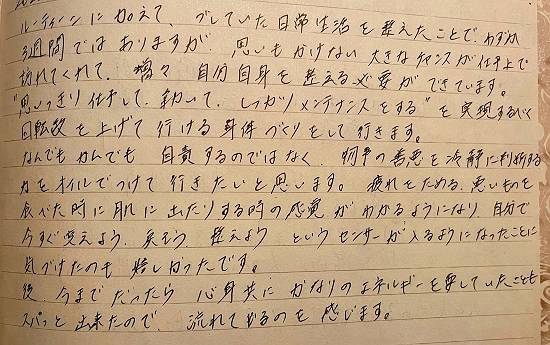 ルーティーンに加えて、ブレていた日常生活を整えたことで、わずか
3週間ではありますが、思いもかけない大きなチャンスが仕事上で
切れてくれて、増々自分自身を整える必要ができています。
"思いっきり仕事して、動いて、しっかりメンテナンスをする"を実現するべく
回転数を上げて行ける身体づくりをして行きます。
なんでもかんでも自責するのではなく、物事の善悪を冷静に判断する
力をオイルでつけて行きたいと思います。疲れをためる、悪いものを
食べた時に肌に出たりする時の感覚がわかるようになり、自分で
今すぐ変えよう、戻そう、整えようというセンサーが入るようになったことに
気づけたのも嬉しかったです。
後、今までだったら心身共にかなりのエネルギーを要していたことも
スパッと出来たので、流れてるのを感じます。